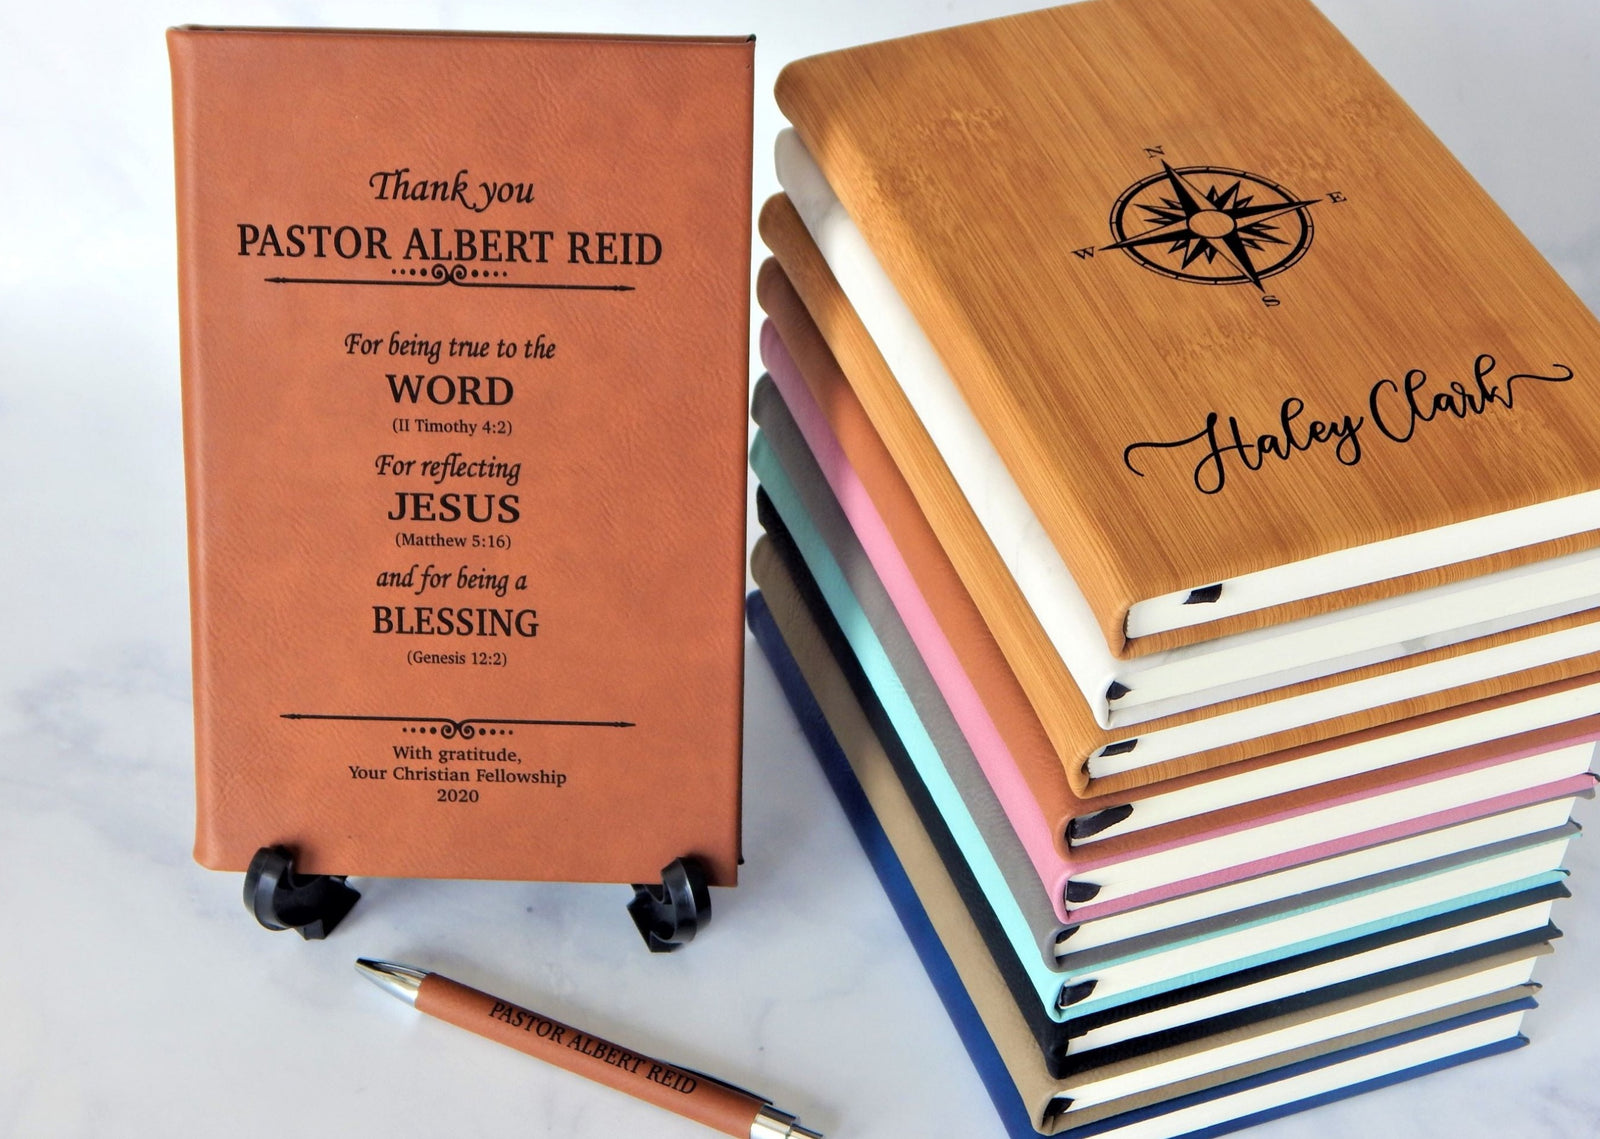 Thank you
PASTOR ALBERT REID
For being true to the
WORD
(II Timothy 4:2)
For reflecting
JESUS
(Matthew 5:16)
and for being a
BLESSING
(Genesis 12:2)
With gratitude,
Your Christian Fellowship
2020
PASTOR ALBERT REID
N
E
W
S
Haley Clark